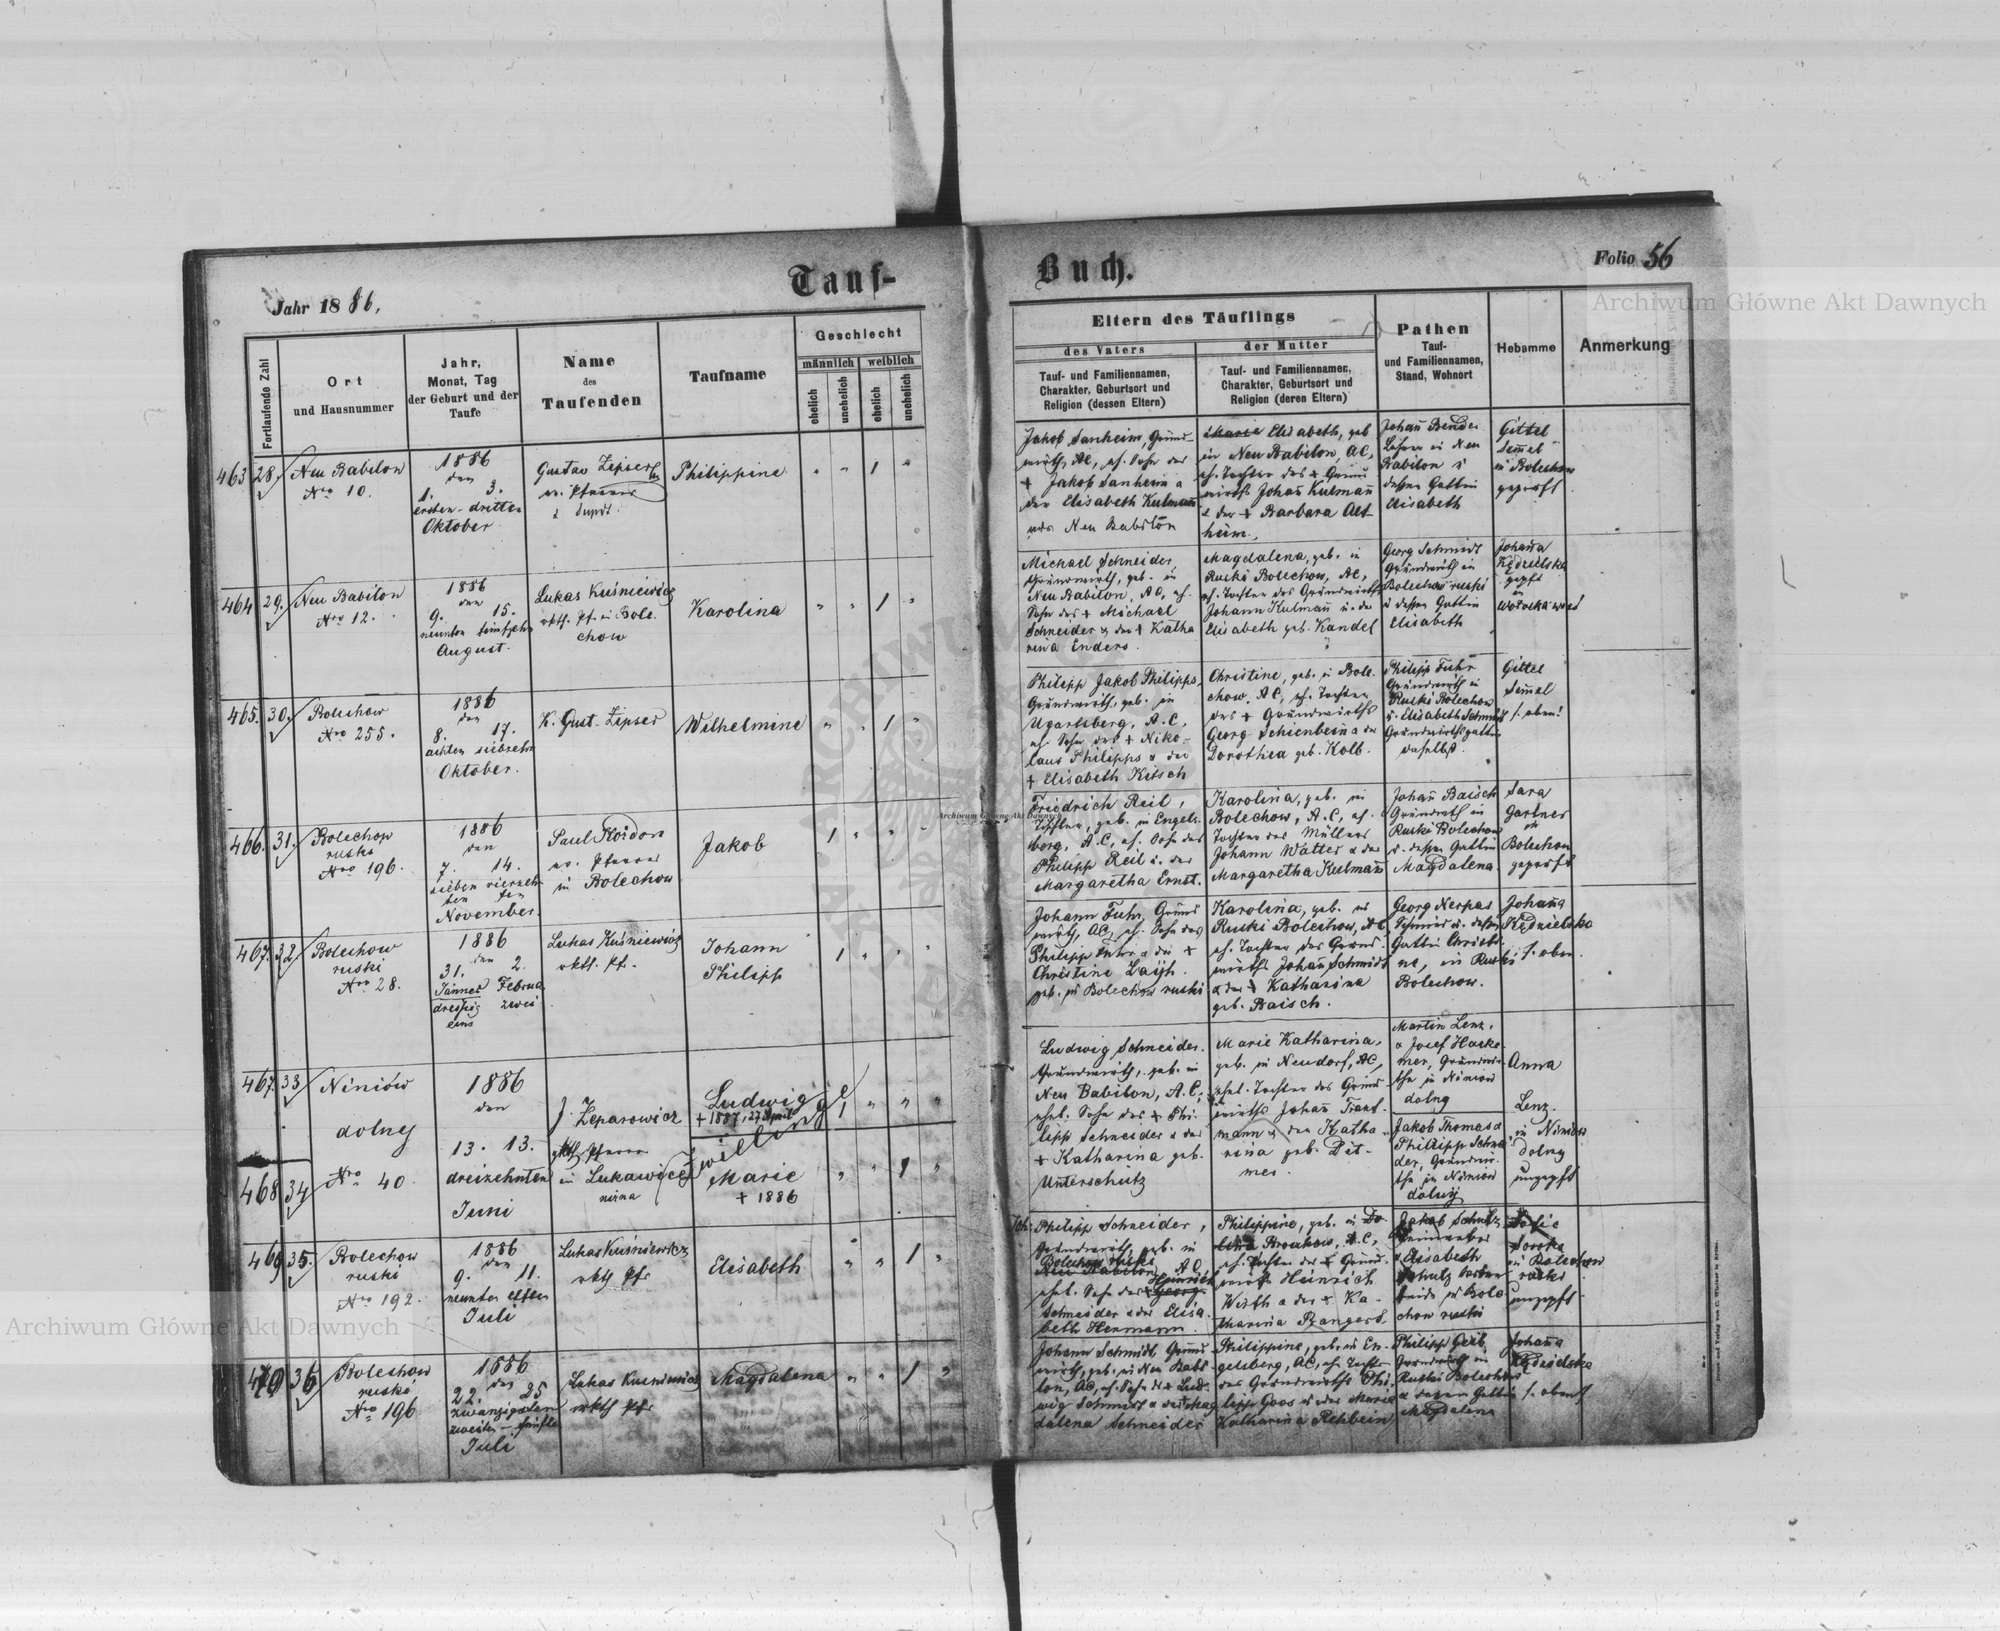 Tauf-
Buch.
Jahr 1886.
Folio 56
Fortlaufende Zahl
Ort
und Hausnummer
Jahr,
Monat, Tag
der Geburt und der
Taufe
Name
des
Taufenden
Taufname
Geschlecht
männlich
weiblich
ehelich
unehelich
ehelich
unehelich
Eltern des Täuflings
des Vaters
Tauf- und Familiennamen,
Charakter, Geburtsort und
Religion (dessen Eltern)
der Mutter
Tauf- und Familiennamen,
Charakter, Geburtsort und
Religion (deren Eltern)
Pathen
Tauf-
und Familiennamen,
Stand, Wohnort
Hebamme
Anmerkung
463
28.
Neu Babilon
Nro 10.
1886
den
1. 3.
ersten - dritten
Oktober
Gustav Zipser
ev. Pfarrer
Philippine
" " 1 "
Jakob Sanheim, Grund-
wirth, AC, eh. Sohn des
+ Jakob Sanheim u
der Elisabeth Kulmann
aus Neu Babilon
Marie Elisabeth, geb
in Neu Babilon, AC,
eh. Tochter des + Grund
wirths Johañ Kulmañ
u der + Barbara Alt-
heim.
Johañ Bender
Lehrer in Neu
Babilon u
dessen Gattin
Elisabeth
Gittel
Semel
in Bolechow
geprüft
464
29.
Neu Babilon
Nro 12.
1886
den
9. 15.
neunten fünfzehn
August.
Lukas Kuśniewicz
rkth. Pf. in Bole-
chow
Karolina
" " 1 "
Michael Schneider,
Grundwirth, geb. in
Neu Babilon, AC, eh.
Sohn des + Michael
Schneider u der + Katha
rina Enders.
Magdalena, geb. in
Ruski Bolechow, AC,
eh. Tochter des Grundwirths
Johann Kulmañ u. der
Elisabeth geb. Kandel
Georg Schmidt
Grundwirth in
Bolechow ruski
u dessen Gattin
Elisabeth
Johaña
Kędzielska
gepft
in
465.
30.
Bolechow
Nro 255.
1886
den
8. 17.
achten siebzehn
Oktober.
K. Gust. Zipser
Wilhelmine
" " 1 "
Philipp Jakob Philipps,
Grundwirth, geb. in
Ugartsberg, A.C,
eh. Sohn des + Niko-
laus Philipps u der
+ Elisabeth Kitsch
Christine, geb. in Bole-
chow, AC, eh. Tochter
des + Grundwirths
Georg Schienbein u der
Dorothea geb. Kolb.
Philipp Fuhr
Grundwirth in
Ruski Bolechow
u. Elisabeth Schmidt
Grundwirthsgattin
daselbst.
Gittel
Semel
s. oben!
466.
31.
Bolechow
ruski
Nro 196.
1886
den
7. 14.
sieben vierzehn
ten ten
November.
Paul Koidon
ev. Pfarrer
in Bolechow
Jakob
1 " " "
Friedrich Reil,
geb. in Engels-
berg, A.C, eh. Sohn des
Philipp Reil u. der
Margaretha Ernst.
Karolina, geb. in
Bolechow, A.C, eh.
Tochter des Müllers
Johann Walter u der
Margaretha Kulmañ
Johañ Baisch
Grundwth in
Ruski Bolechow
u. dessen Gattin
Magdalena
Sara
Gartner
in
Bolechow
geprüft
467.
32
Bolechow
ruski
Nro 28.
1886
den
31. 2.
Jänner Februa
dreißig zwei
eins
Lukas Kuśniewicz
rkth. Pf.
Johann
Philipp
1 " " "
Johann Fuhr, Grund
wirth, AC, eh. Sohn des
Philipp Fuhr u der +
Christine
geb. in Bolechow ruski
Karolina, geb. in
Ruski Bolechow, AC,
eh. Tochter des Grund-
wirths Johañ Schmidt
u der + Katharina
geb. Baisch.
Georg Nerpas
Schmied u. dessen
Gattin Christi-
ne, in Ruski
Bolechow.
Johaña
Kędzielska
s. oben.
467.
33
Niniów
dolny
Nro 40.
1886
den
13. 13.
dreizehnten
Juni
J. Zeparowicz
gkth Pfarrer
in Lukawica
niżna
Ludwig
+ 1887, 27 April
Zwillinge
1 " " "
468
34
Marie
+ 1886
" " 1 "
Ludwig Schneider.
Grundwirth, geb. in
Neu Babilon, A.C,
ehel. Sohn des + Phi-
lipp Schneider u der
+ Katharina geb.
Unterschütz
Marie Katharina,
geb. in Neudorf, AC,
ehel. Tochter des Grund-
wirths Johañ Traut-
mann u der Katha-
rina geb. Dit-
mer.
Martin Lenz.
u Josef Hacke-
mer, Grundwir-
the in Niniów
dolny
Jakob Thomas u
Philipp Schnei
der, Grundwir-
the in Niniow
dolny
Anna
Lenz.
in Niniów
dolny
ungepft
469
35.
Bolechow
ruski
Nro 192.
1886
den
9. 11.
neunten elften
Juli
Lukas Kuśniewicz
rkth Pfr
Elisabeth
" " 1 "
Philipp Schneider,
Grundwirth, geb. in
Bolechow ruski
Neu Babilon, AC
ehel. Sohn des + Georg
Heinrich
Schneider u der Elisa-
beth Hermann.
Philippine, geb. in Do-
lina Broszkow, A.C,
eh. Tochter des + Grund-
wirths Heinrich
Wirth u der + Ka-
tharina Bangert.
Jakob Schulz
u Elisabeth
Schulz
beide in Bole-
chow ruski
in Bolechow
ruski
ungepft
470
36
Bolechow
ruski
Nro 196
1886
den
22. 25
zwanzigsten
zweiten - fünfte
Juli
Lukas Kuśniewicz
rkth Pfr
Magdalena
" " 1 "
Johann Schmidt, Grund
wirth, geb. in Neu Babi-
lon, AC, eh. Sohn des + Lud-
wig Schmidt u der + Mag
dalena Schneider
Philippine, geb. in En-
gelsberg, AC, eh. Tochter
des Grundwirths Phi-
lipp Goos u der Marie
Katharina Rehbein
Philipp Geib
Grundwirth in
Ruski Bolechow
u dessen Gattin
Magdalena
Johaña
Kędzielska
s. oben!
Archiwum Główne Akt Dawnych
Archiwum Główne Akt Dawnych
Archiwum Główne Akt Dawnych